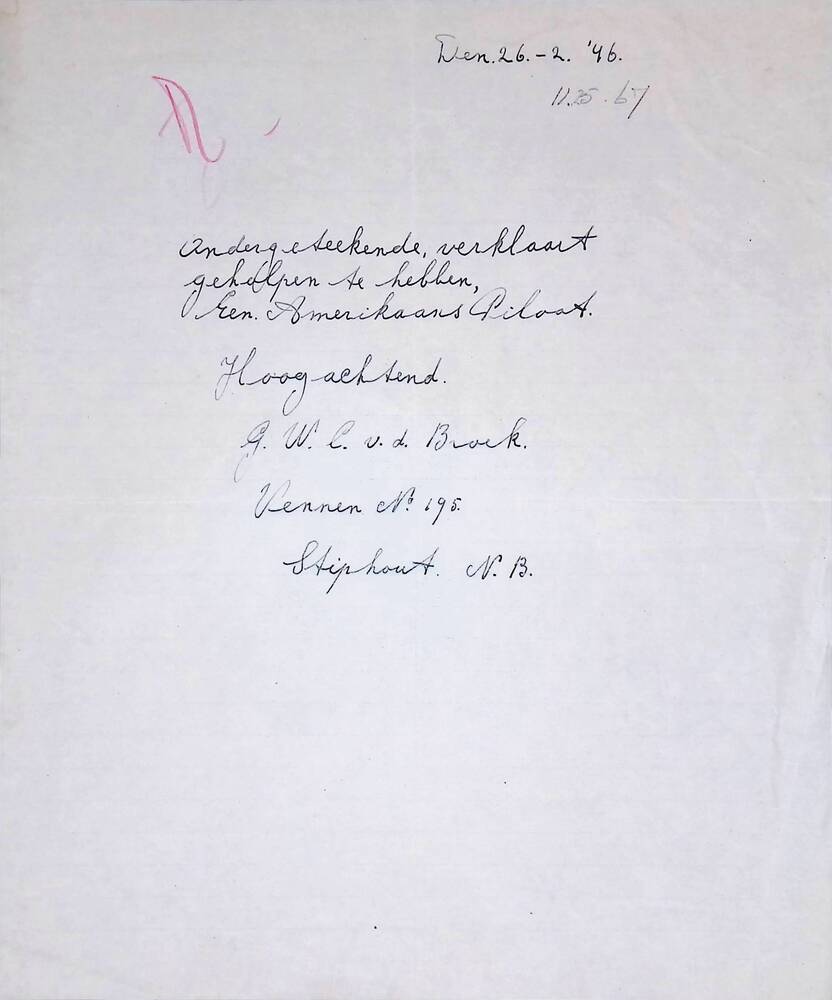 Den. 26. - 2. '46.
11.25.67
Ondergeteekende, verklaart
geholpen te hebben,
Een. Amerikaans Piloot.
Hoogachtend.
G. W. C. v. d. Broek.
Vennen No. 195.
Stiphout. N. B.